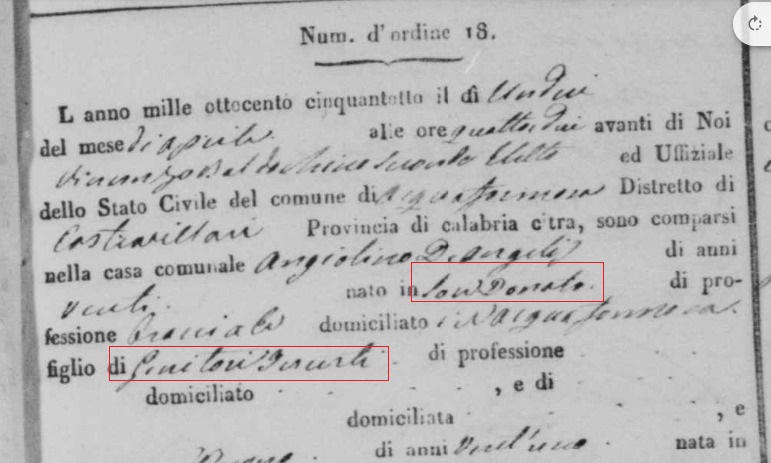 Num. d'ordine 18.
L anno mille ottocento cinquantotto il dì Undici
del mese di aprile alle ore quattordici avanti di Noi
Vincenzo Secondo Eletto ed Uffiziale
dello Stato Civile del comune di Acquaformosa Distretto di
Castrovillari Provincia di calabria citra, sono comparsi
nella casa comunale Angiolino De Angelis di anni
venti nato in San Donato di pro-
fessione bracciale domiciliato in Acquaformosa
figlio di Genitori Incerti di professione
domiciliato , e di
domiciliata , e
di anni vent'uno nata in